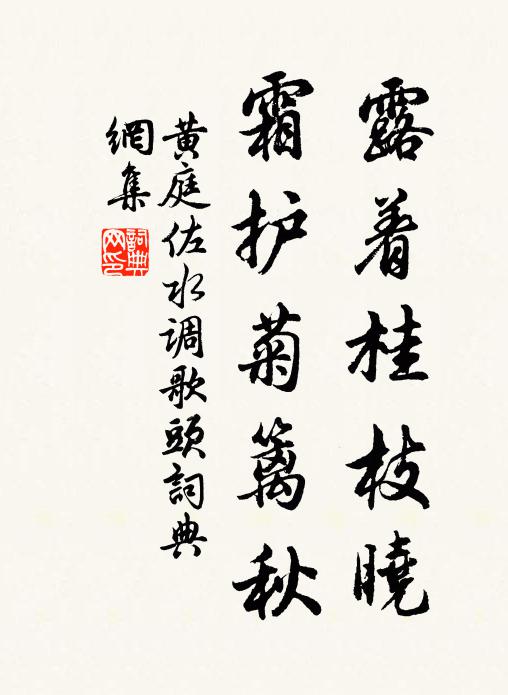 露着桂枝曉
霜护菊篱秋
黄庭佐水调歌頭詞典
網集
詞典
网印